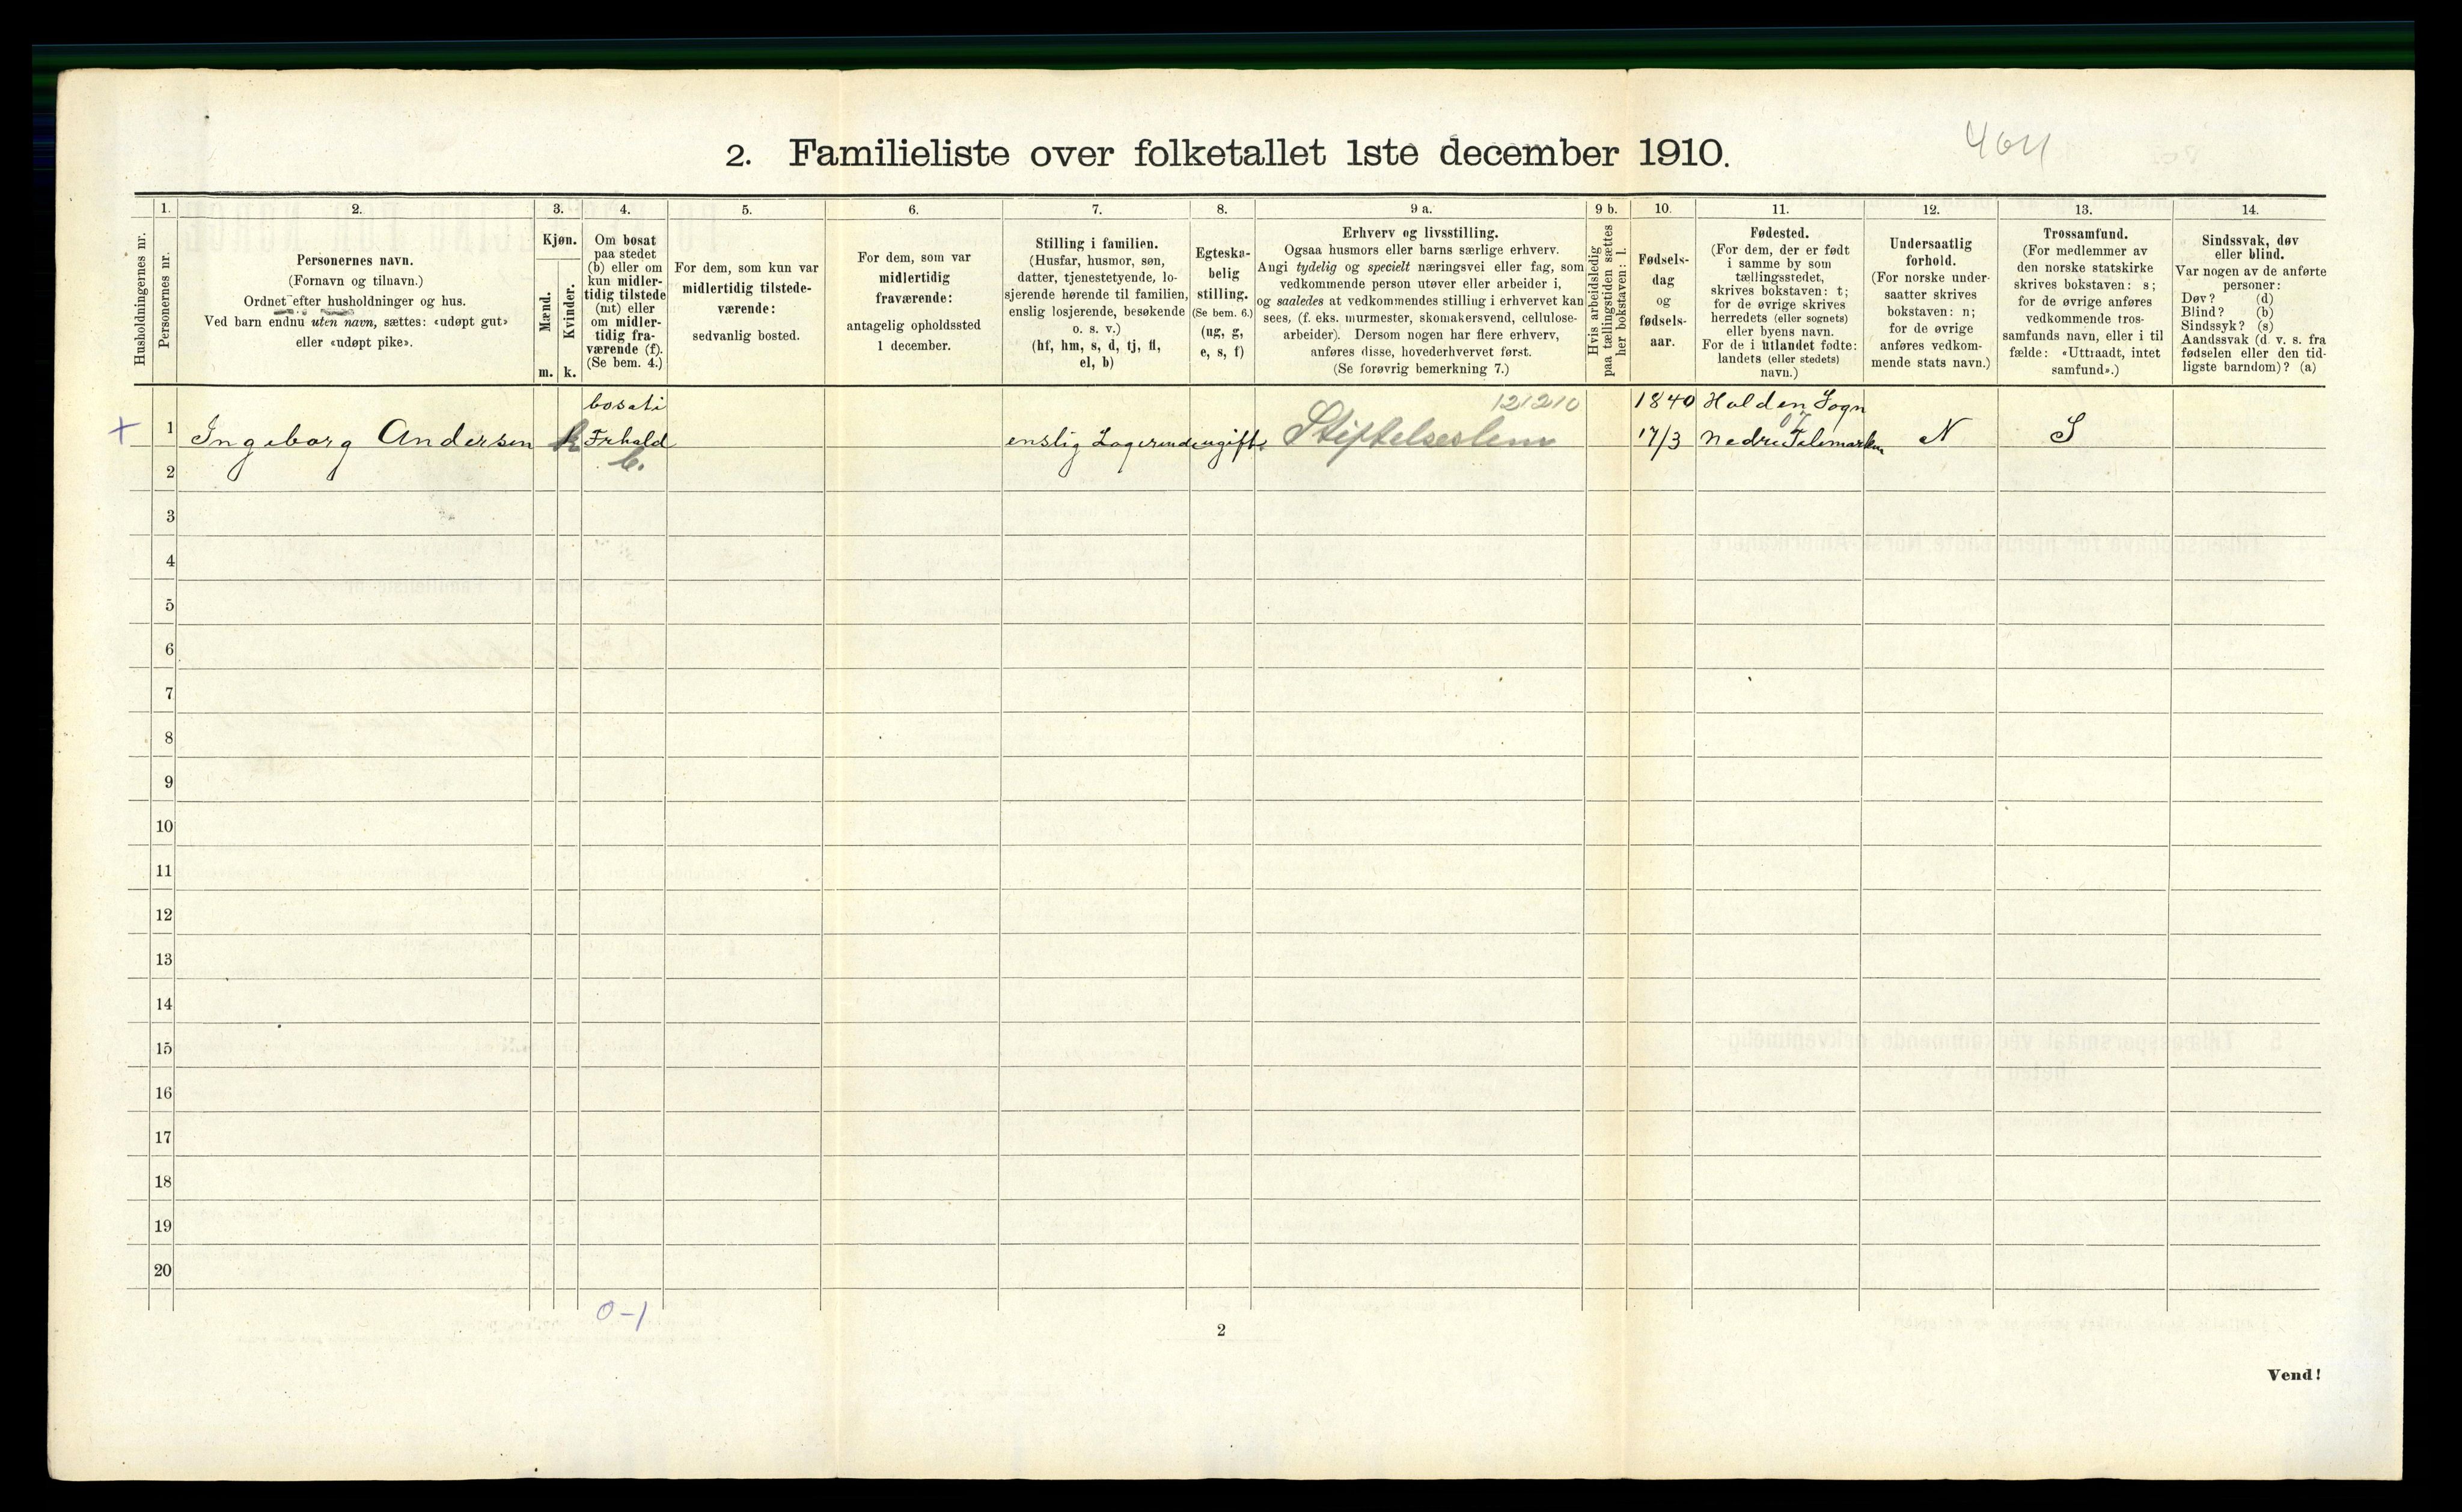 464
2. Familieliste over folketallet 1ste december 1910.
Husholdningernes nr.
1.
Personernes nr.
2.
Personernes navn.
(Fornavn og tilnavn.)
Ordnet efter husholdninger og hus.
Ved barn endnu uten navn, sættes: «udøpt gut»
eller «udøpt pike».
3.
Kjøn.
Mænd.
Kvinder.
m. k.
4.
Om bosat
paa stedet
(b) eller om
kun midler-
tidig tilstede
(mt) eller
om midler-
tidig fra-
værende (f).
(Se bem. 4.)
5.
For dem, som kun var
midlertidig tilstede-
værende:
sedvanlig bosted.
6.
For dem, som var
midlertidig
fraværende:
antagelig opholdssted
1 december.
7.
Stilling i familien.
(Husfar, husmor, søn,
datter, tjenestetyende, lo-
sjerende hørende til familien,
enslig losjerende, besøkende
o. s. v.)
(hf, hm, s, d, tj, fl,
el, b)
8.
Egteska-
belig
stilling.
(Se bem. 6.)
(ug, g,
e, s, f)
9 a.
Erhverv og livsstilling.
Ogsaa husmors eller barns særlige erhverv.
Angi tydelig og specielt næringsvei eller fag, som
vedkommende person utøver eller arbeider i,
og saaledes at vedkommendes stilling i erhvervet kan
sees, (f. eks. murmester, skomakersvend, cellulose-
arbeider). Dersom nogen har flere erhverv,
anføres disse, hovederhvervet først.
(Se forøvrig bemerkning 7.)
9 b.
Hvis arbeidsledig
paa tællingstiden sættes
her bokstaven: l.
10.
Fødsels-
dag
og
fødsels-
aar.
11.
Fødested.
(For dem, der er født
i samme by som
tællingsstedet,
skrives bokstaven: t;
for de øvrige skrives
herredets (eller sognets)
eller byens navn.
For de i utlandet fødte:
landets (eller stedets)
navn.)
12.
Undersaatlig
forhold.
(For norske under-
saatter skrives
bokstaven: n;
for de øvrige
anføres vedkom-
mende stats navn.)
13.
Trossamfund.
(For medlemmer av
den norske statskirke
skrives bokstaven: s;
for de øvrige anføres
vedkommende tros-
samfunds navn, eller i til
fælde: «Uttraadt, intet
samfund».)
14.
Sindssvak, døv
eller blind.
Var nogen av de anførte
personer:
Døv? (d)
Blind? (b)
Sindssyk? (s)
Aandssvak (d. v. s. fra
fødselen eller den tid-
ligste barndom)? (a)
bosati 121210 1840 Holden Sogn
+ 1 Ingeborg Andersen k Frhald enslig Logerende ugift. Stiftelseslem 17/3 Nedre Telemarken N S
b.
2
3
4
5
6
7
8
9
10
11
12
13
14
15
16
17
18
19
20
0-1
2
Vend!